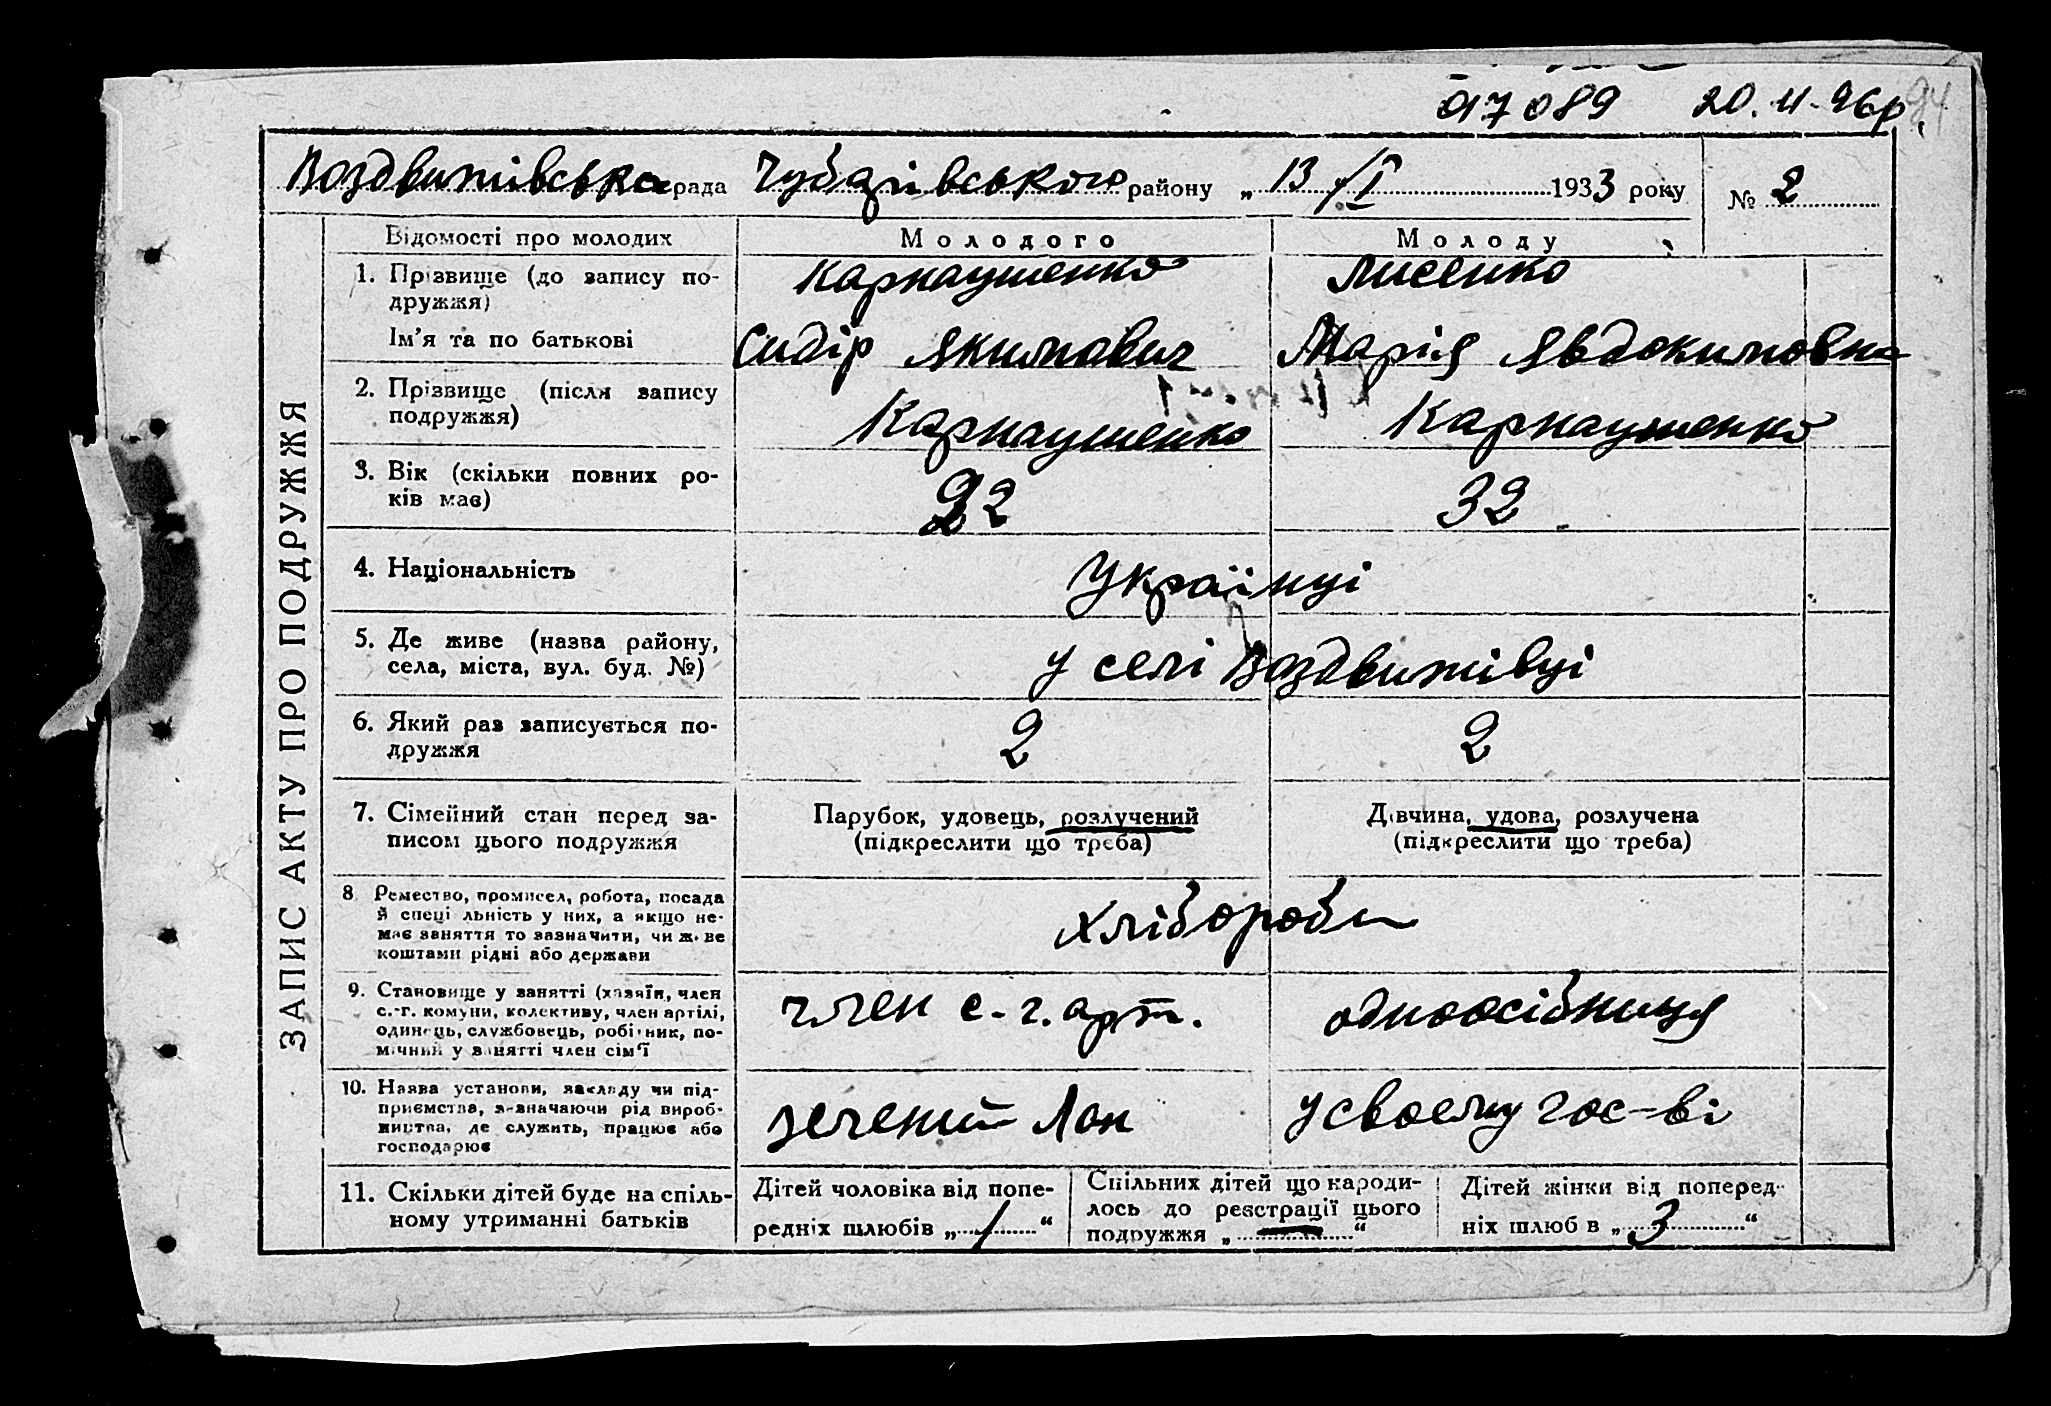 017089 20.11.96р. 94
Воздвижівська рада Чубарівського району „13/I 1933 року № 2
ЗАПИС АКТУ ПРО ПОДРУЖЖЯ
Відомості про молодих Молодого Молоду
1. Прізвище (до запису по-
дружжя) Карнаушенко Лисенко
Ім'я та по батькові Сидір Якимович Марія Явдокимовна
2. Прізвище (після запису
подружжя) Карнаушенко Карнаушенко
3. Вік (скільки повних ро-
ків має) 22 32
4. Національність Українці
5. Де живе (назва району,
села, міста, вул. буд. №) у селі Воздвижівці
6. Який раз записується по-
дружжя 2 2
7. Сімейний стан перед за-
писом цього подружжя
Парубок, удовець, розлучений
(підкреслити що треба)
Дівчина, удова, розлучена
(підкреслити що треба)
8 Ремество, промисел, робота, посада
й спеціальність у них, а якщо не-
має заняття то зазначити, чи живе
коштами рідні або держави
Хлібороби
9. Становище у занятті (хазяїн, член
с.-г. комуни, колективу, член артілі,
одинець, службовець, робітник, по-
мічний у занятті член сім'ї
член с.-г. арт. одноосібниця
10. Назва установи, закладу чи під-
приємства, зазначаючи рід вироб-
ництва, де служить, працює або
господарює
зелений Лан у своєму гос-ві
11. Скільки дітей буде на спіль-
ному утриманні батьків
Дітей чоловіка від попе-
редніх шлюбів „1“
Спільних дітей що народи-
лось до реєстрації цього
подружжя „—“
Дітей жінки від поперед-
ніх шлюбів „3“